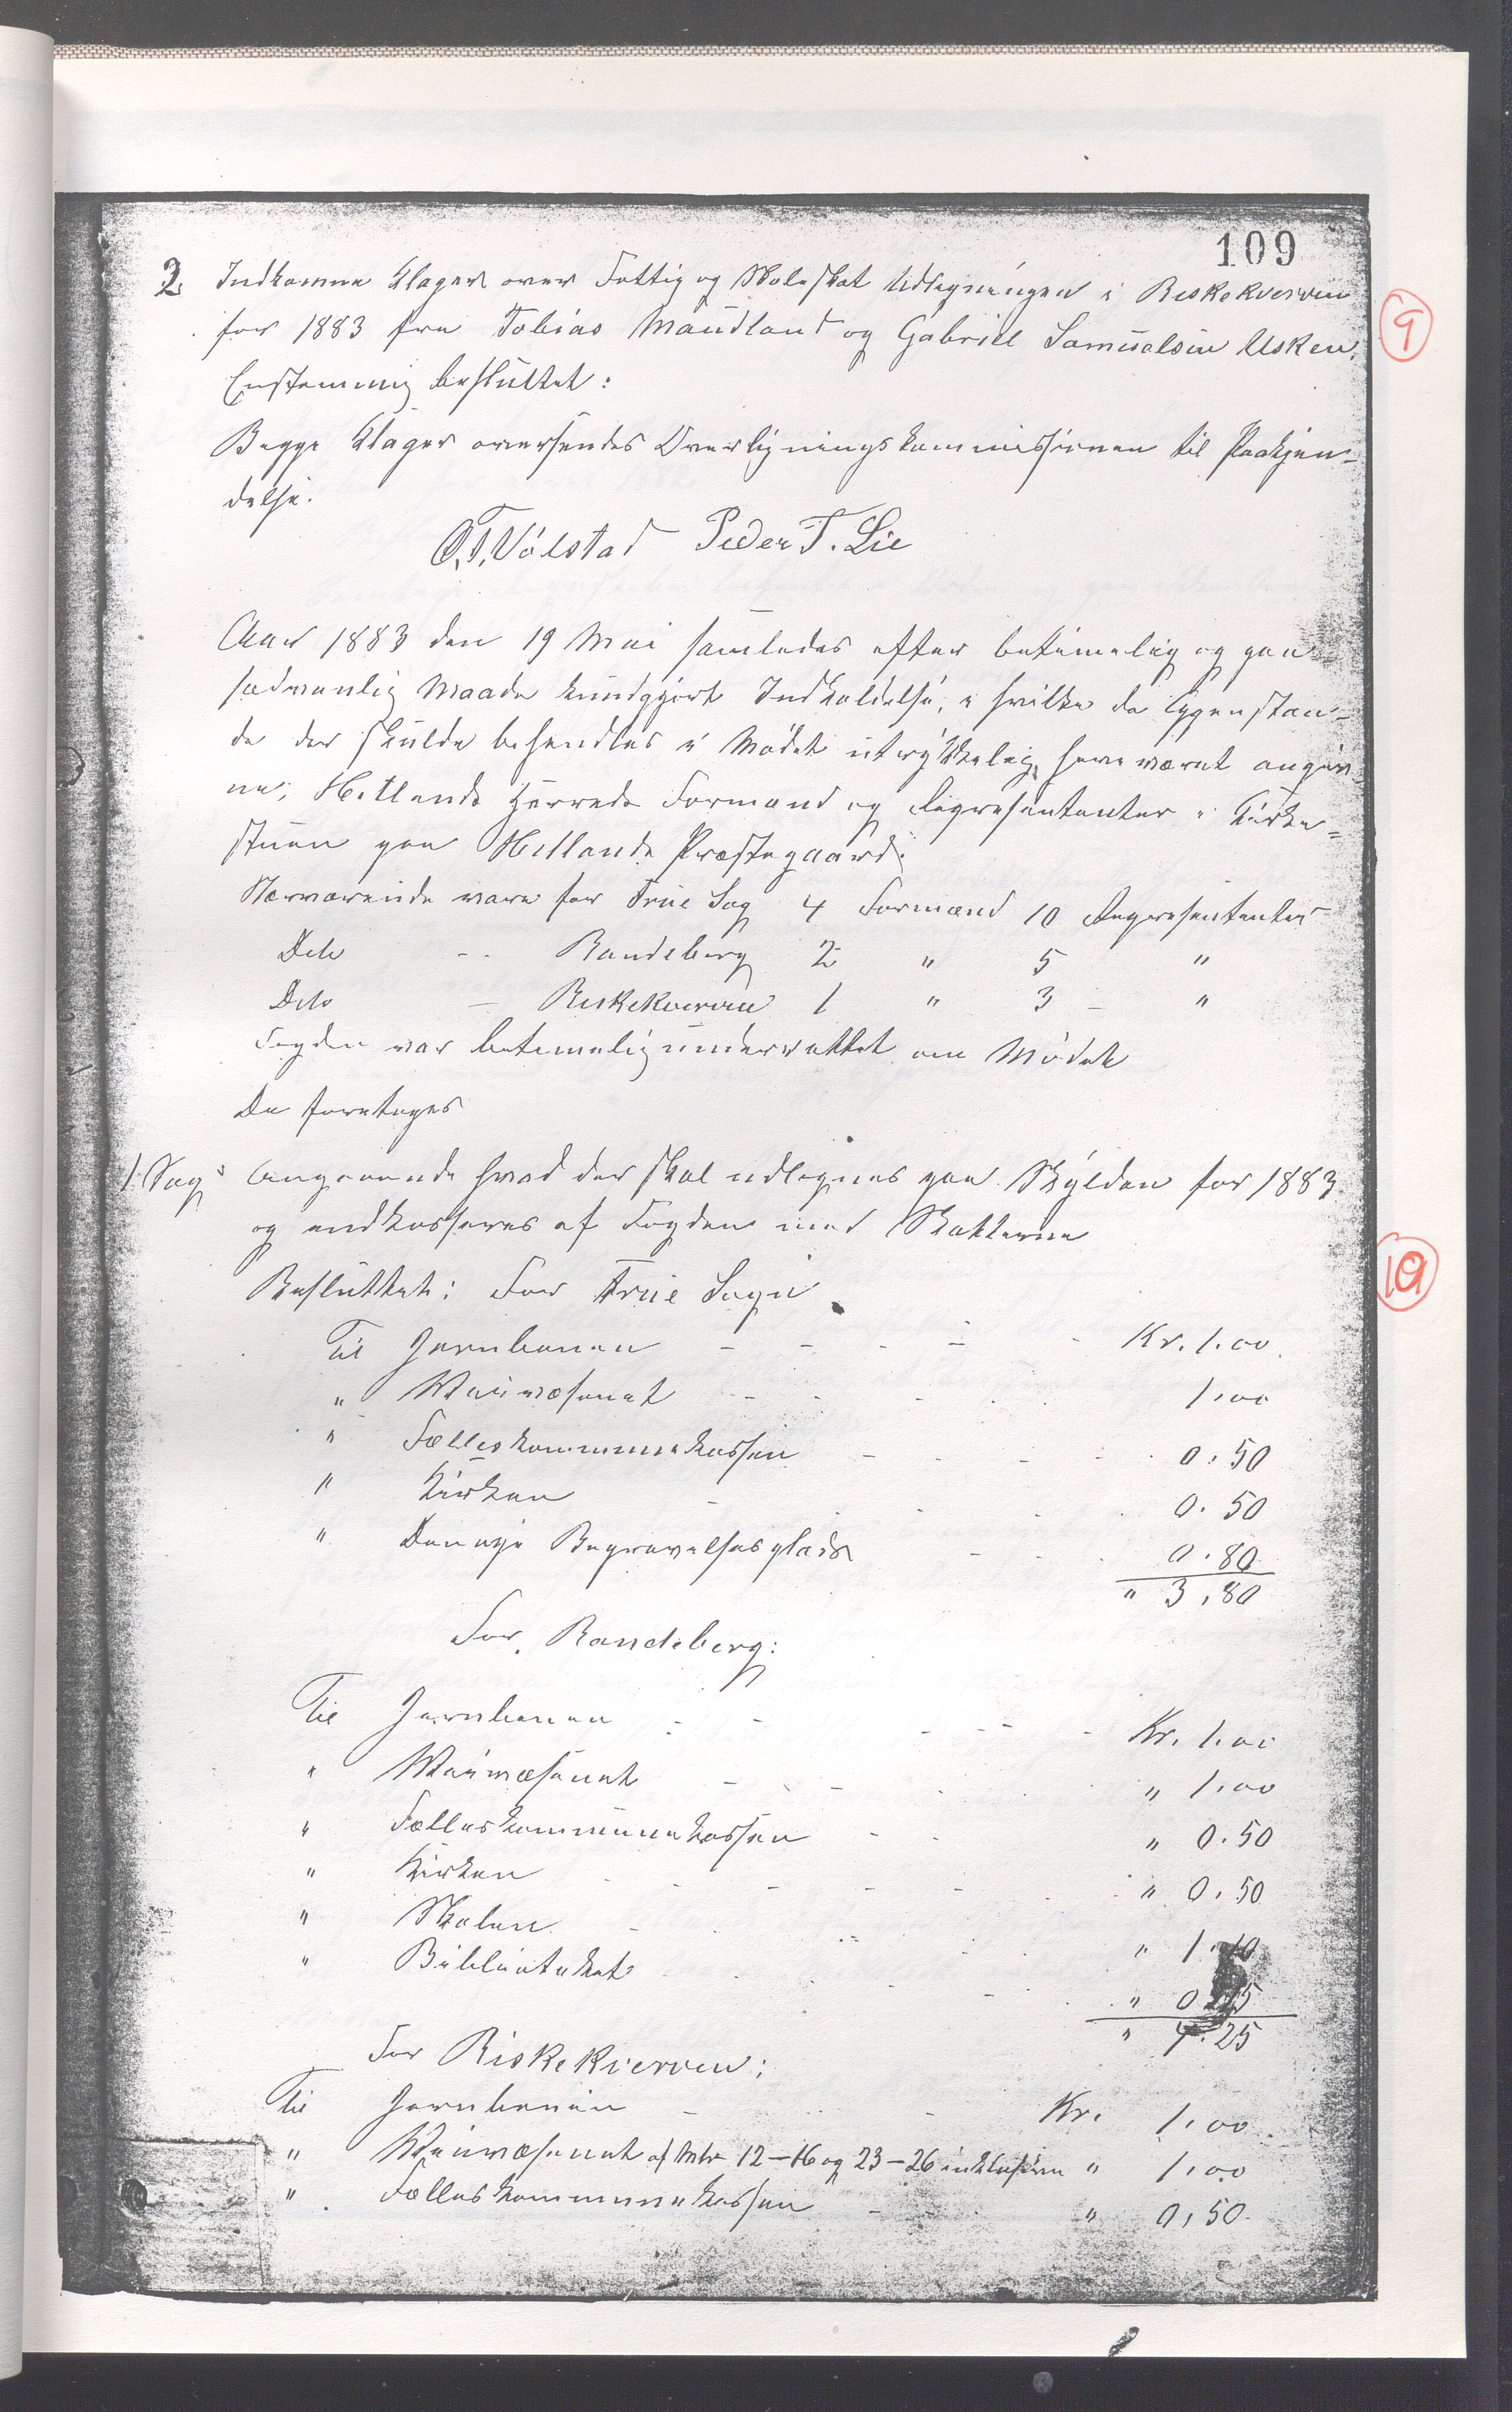 109
2. Indkomne Klager over Fattig og Skoleskat Udligningen i Riskekverven
for 1883 fra Tobias Maudland og Gabriel Samuelsen Usken.
9
Enstemmig besluttet:
Begge Klager oversendes Overligningskommissionen til Paakjen-
delse.
O. T. Vølstad Peder T. Lie
Aar 1883 den 19 Mai samledes efter betimelig og paa
sædvanlig Maade kundgjort Indkaldelse, i hvilke de Gjenstan-
de der skulde behandles i Mødet utrykkelig have været angiv-
ne, Hetlands Herreds Formænd og Repræsentanter i Kirke-
stuen paa Hetlands Præstegaard.
Nærværende vare for Frue Sogn 4 Formænd 10 Repræsentanter
Dito - - Randeberg 2 " 5 "
Dito - Riskekverven 1 " 3 - "
Fogden var betimelig underrettet om Mødet
De foretoges
1. Sag: Angaaende hvad der skal udlignes paa Skylden for 1883
og indkasseres af Fogden med Skatterne
10
Besluttet: For Frue Sogn
Til Jernbanen - - - - - Kr. 1.00
" Veivæsenet - - - - 1.00
" Fælleskommunekassen - - - - 0.50
" Kirken - - - - 0.50
" Den nye Begravelsesplads - - - 0.80
" 3.80
For Randeberg:
Til Jernbanen - - - - - Kr. 1.00
" Veivæsenet - - - " 1.00
" Fælleskommunekassen - - " 0.50
" Kirken - - - - - " 0.50
" Skolen - - - " 1.10
" Bibliotheket - - - " 0.15
" 4.25
For Riskekverven:
Til Jernbanen - - - Kr. 1.00
" Veivæsenet af Mtr 12-16 og 23-26 inklusive " 1.00
" Fælleskommunekassen - - " 0.50